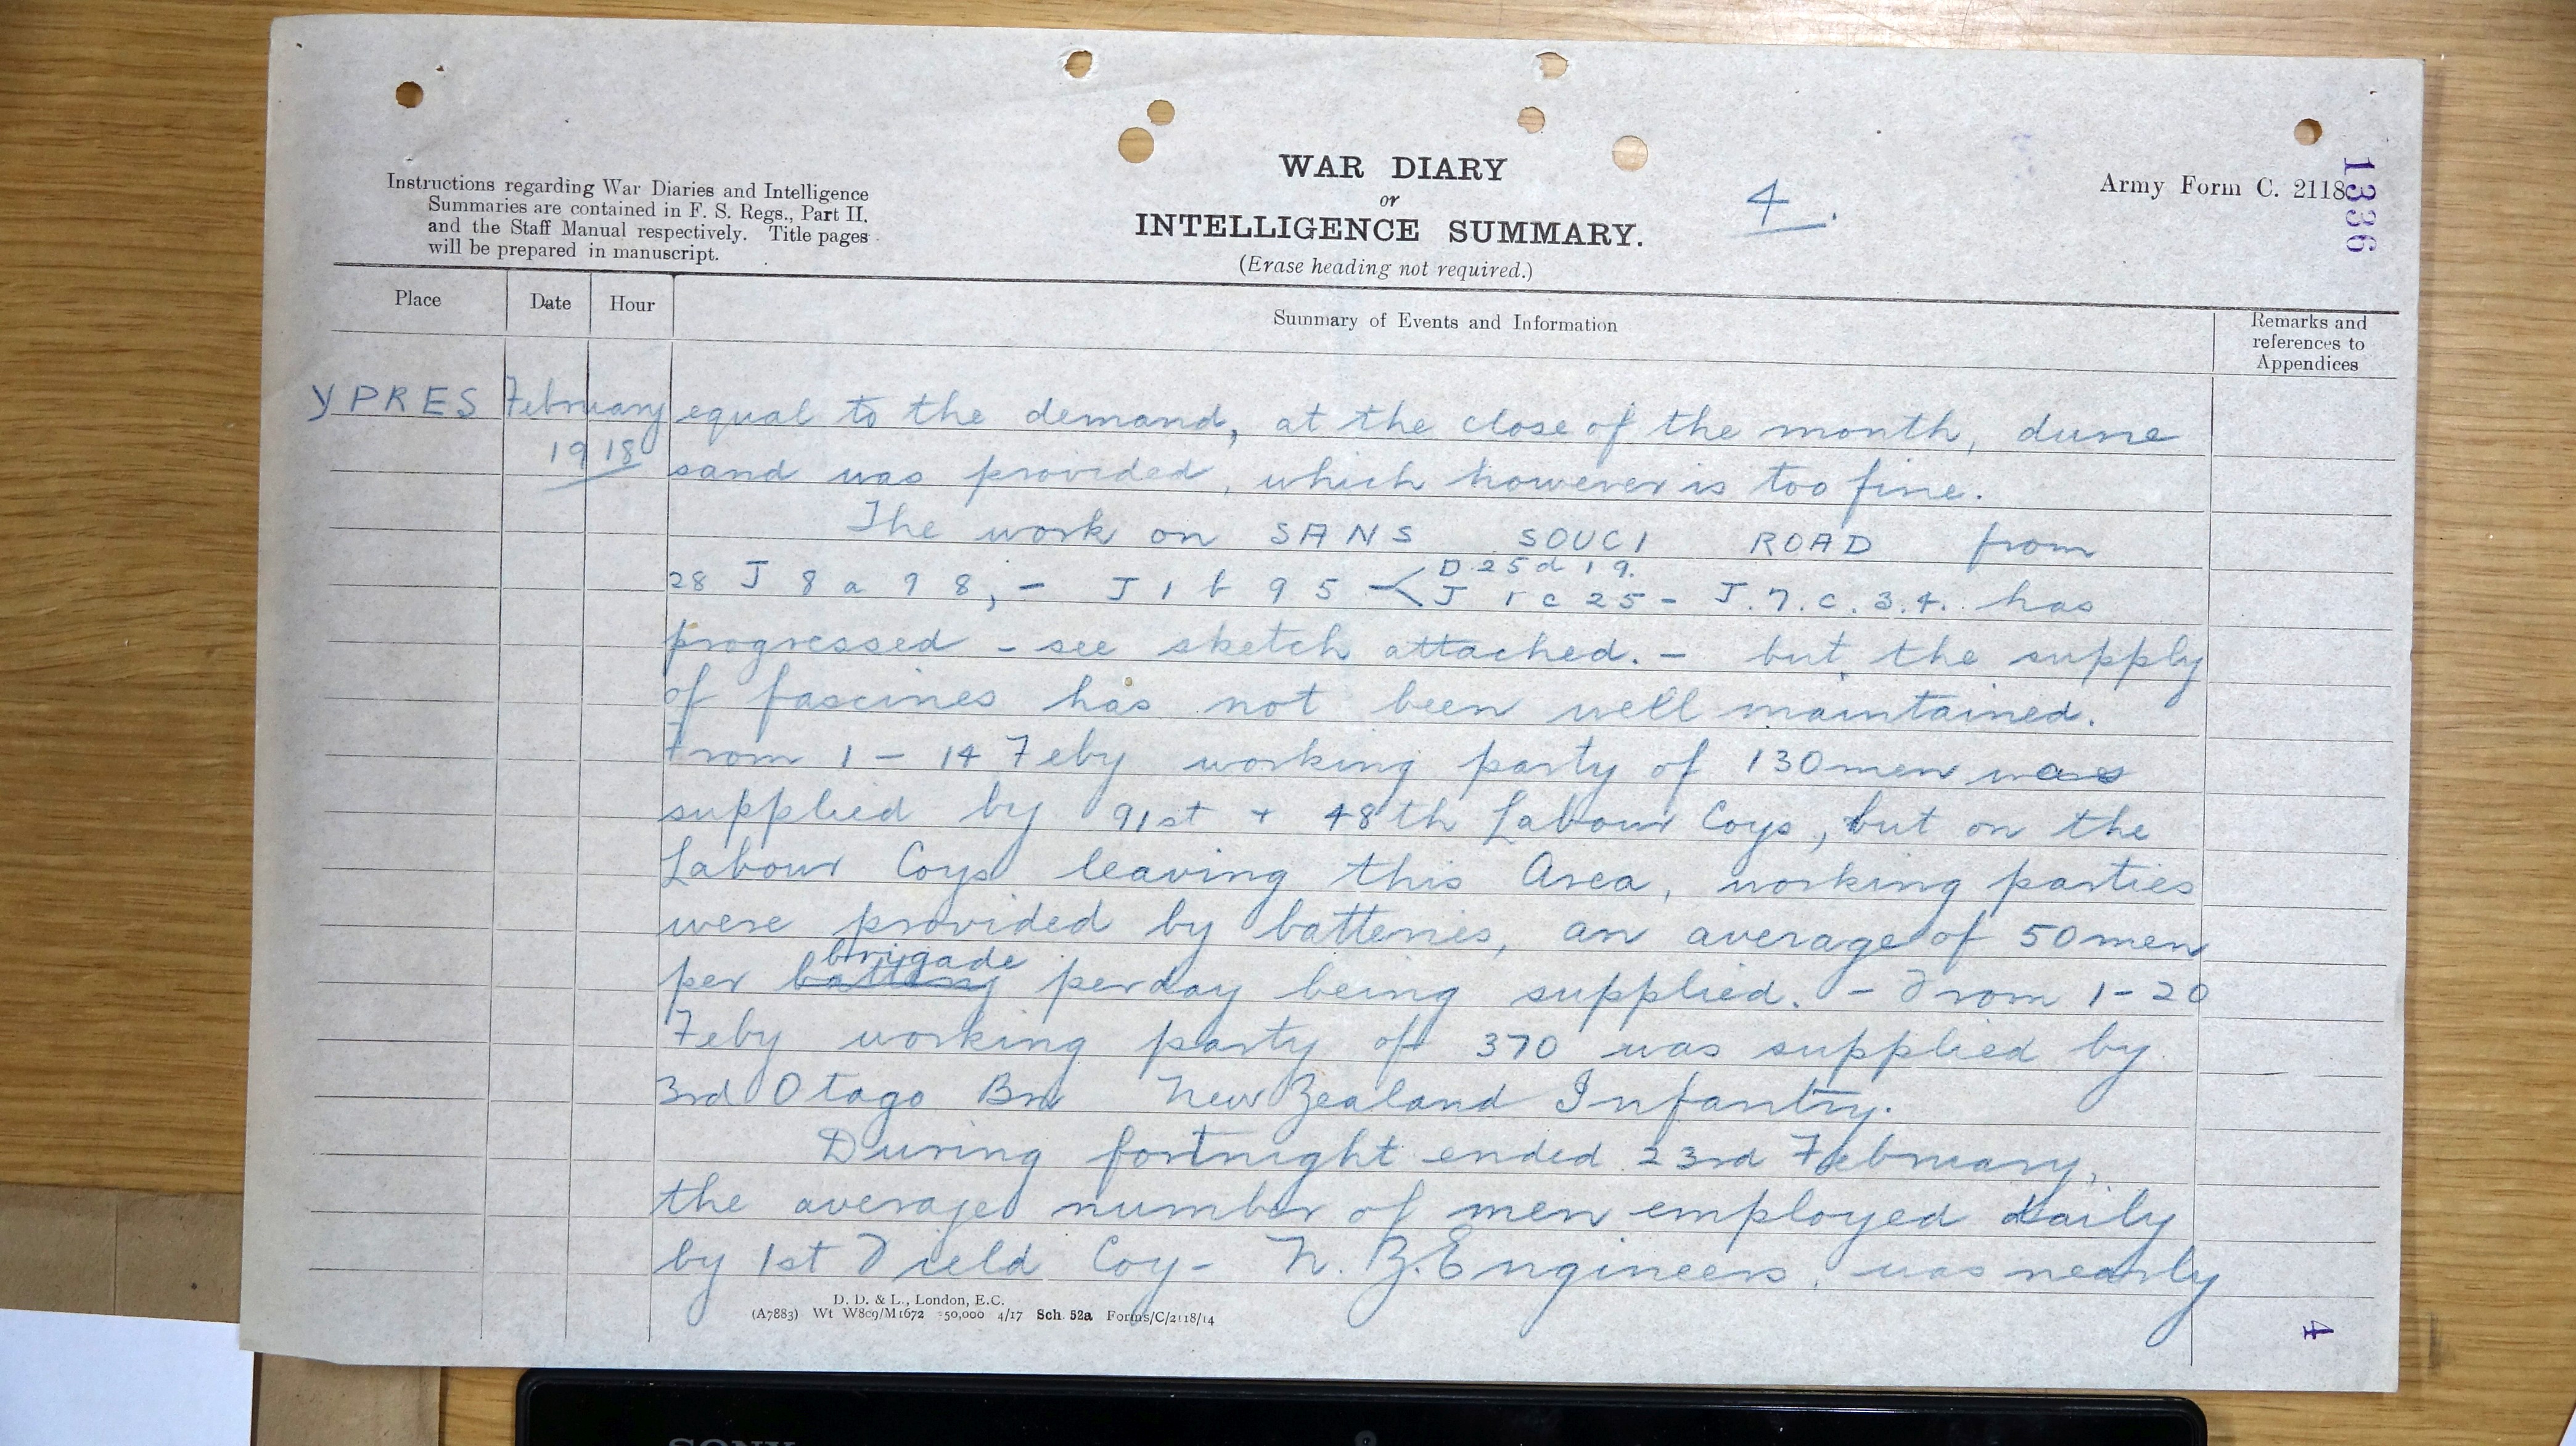 WAR DIARY
or
INTELLIGENCE SUMMARY.
(Erase heading not required.)
4.
Army Form C. 2118
1336
Instructions regarding War Diaries and Intelligence
Summaries are contained in F. S. Regs., Part II.
and the Staff Manual respectively. Title pages
will be prepared in manuscript.
Place Date Hour Summary of Events and Information Remarks and
references to
Appendices
YPRES February
1918
equal to the demand, at the close of the month, dune
sand was provided, which however is too fine.
The work on SANS SOUCI ROAD from
D 25 d 19.
28 J 8 a 9 8, - J 1 b 9 5 - < J 1 c 25 - J.7.c.3.4. has
progressed - see sketch attached. - but the supply
of fascines has not been well maintained.
From 1 - 14 Feby working party of 130 men was
supplied by 91st + 48th Labour Coys, but on the
Labour Coys leaving this Area, working parties
were provided by batteries, an average of 50 men
brigade
per battery per day being supplied. - From 1-20
Feby working party of 370 was supplied by
3rd Otago Bn New Zealand Infantry.
During fortnight ended 23rd February,
the average number of men employed daily
by 1st Field Coy - N.Z. Engineers, was nearly
D. D. & L., London, E.C.
(A7883) Wt W809/M1672 50,000 4/17 Sch. 52a Forms/C/2118/14
4
SONY